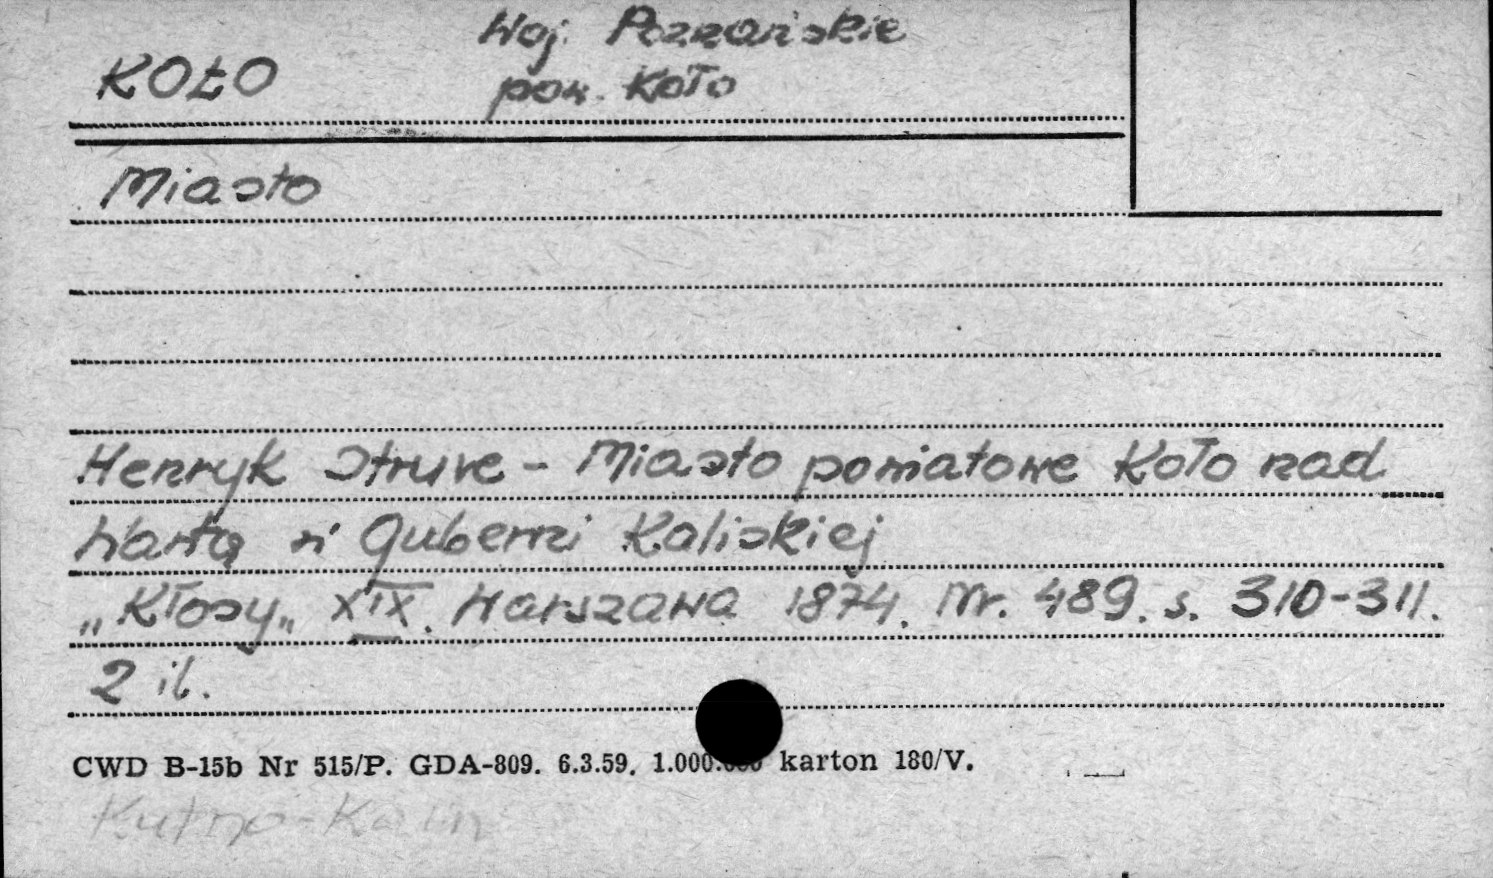 Woj. Poznańskie
KOŁO pow. Koło
Miasto
Henryk Struve - Miasto powiatowe Koło nad
Wartą w Guberni Kaliskiej
„Kłosy„ XIX. Warszawa 1874. Nr. 489. s. 310-311.
2 il.
CWD B-15b Nr 515/P. GDA-809. 6.3.59. 1.000.000 karton 180/V.
Kutno-